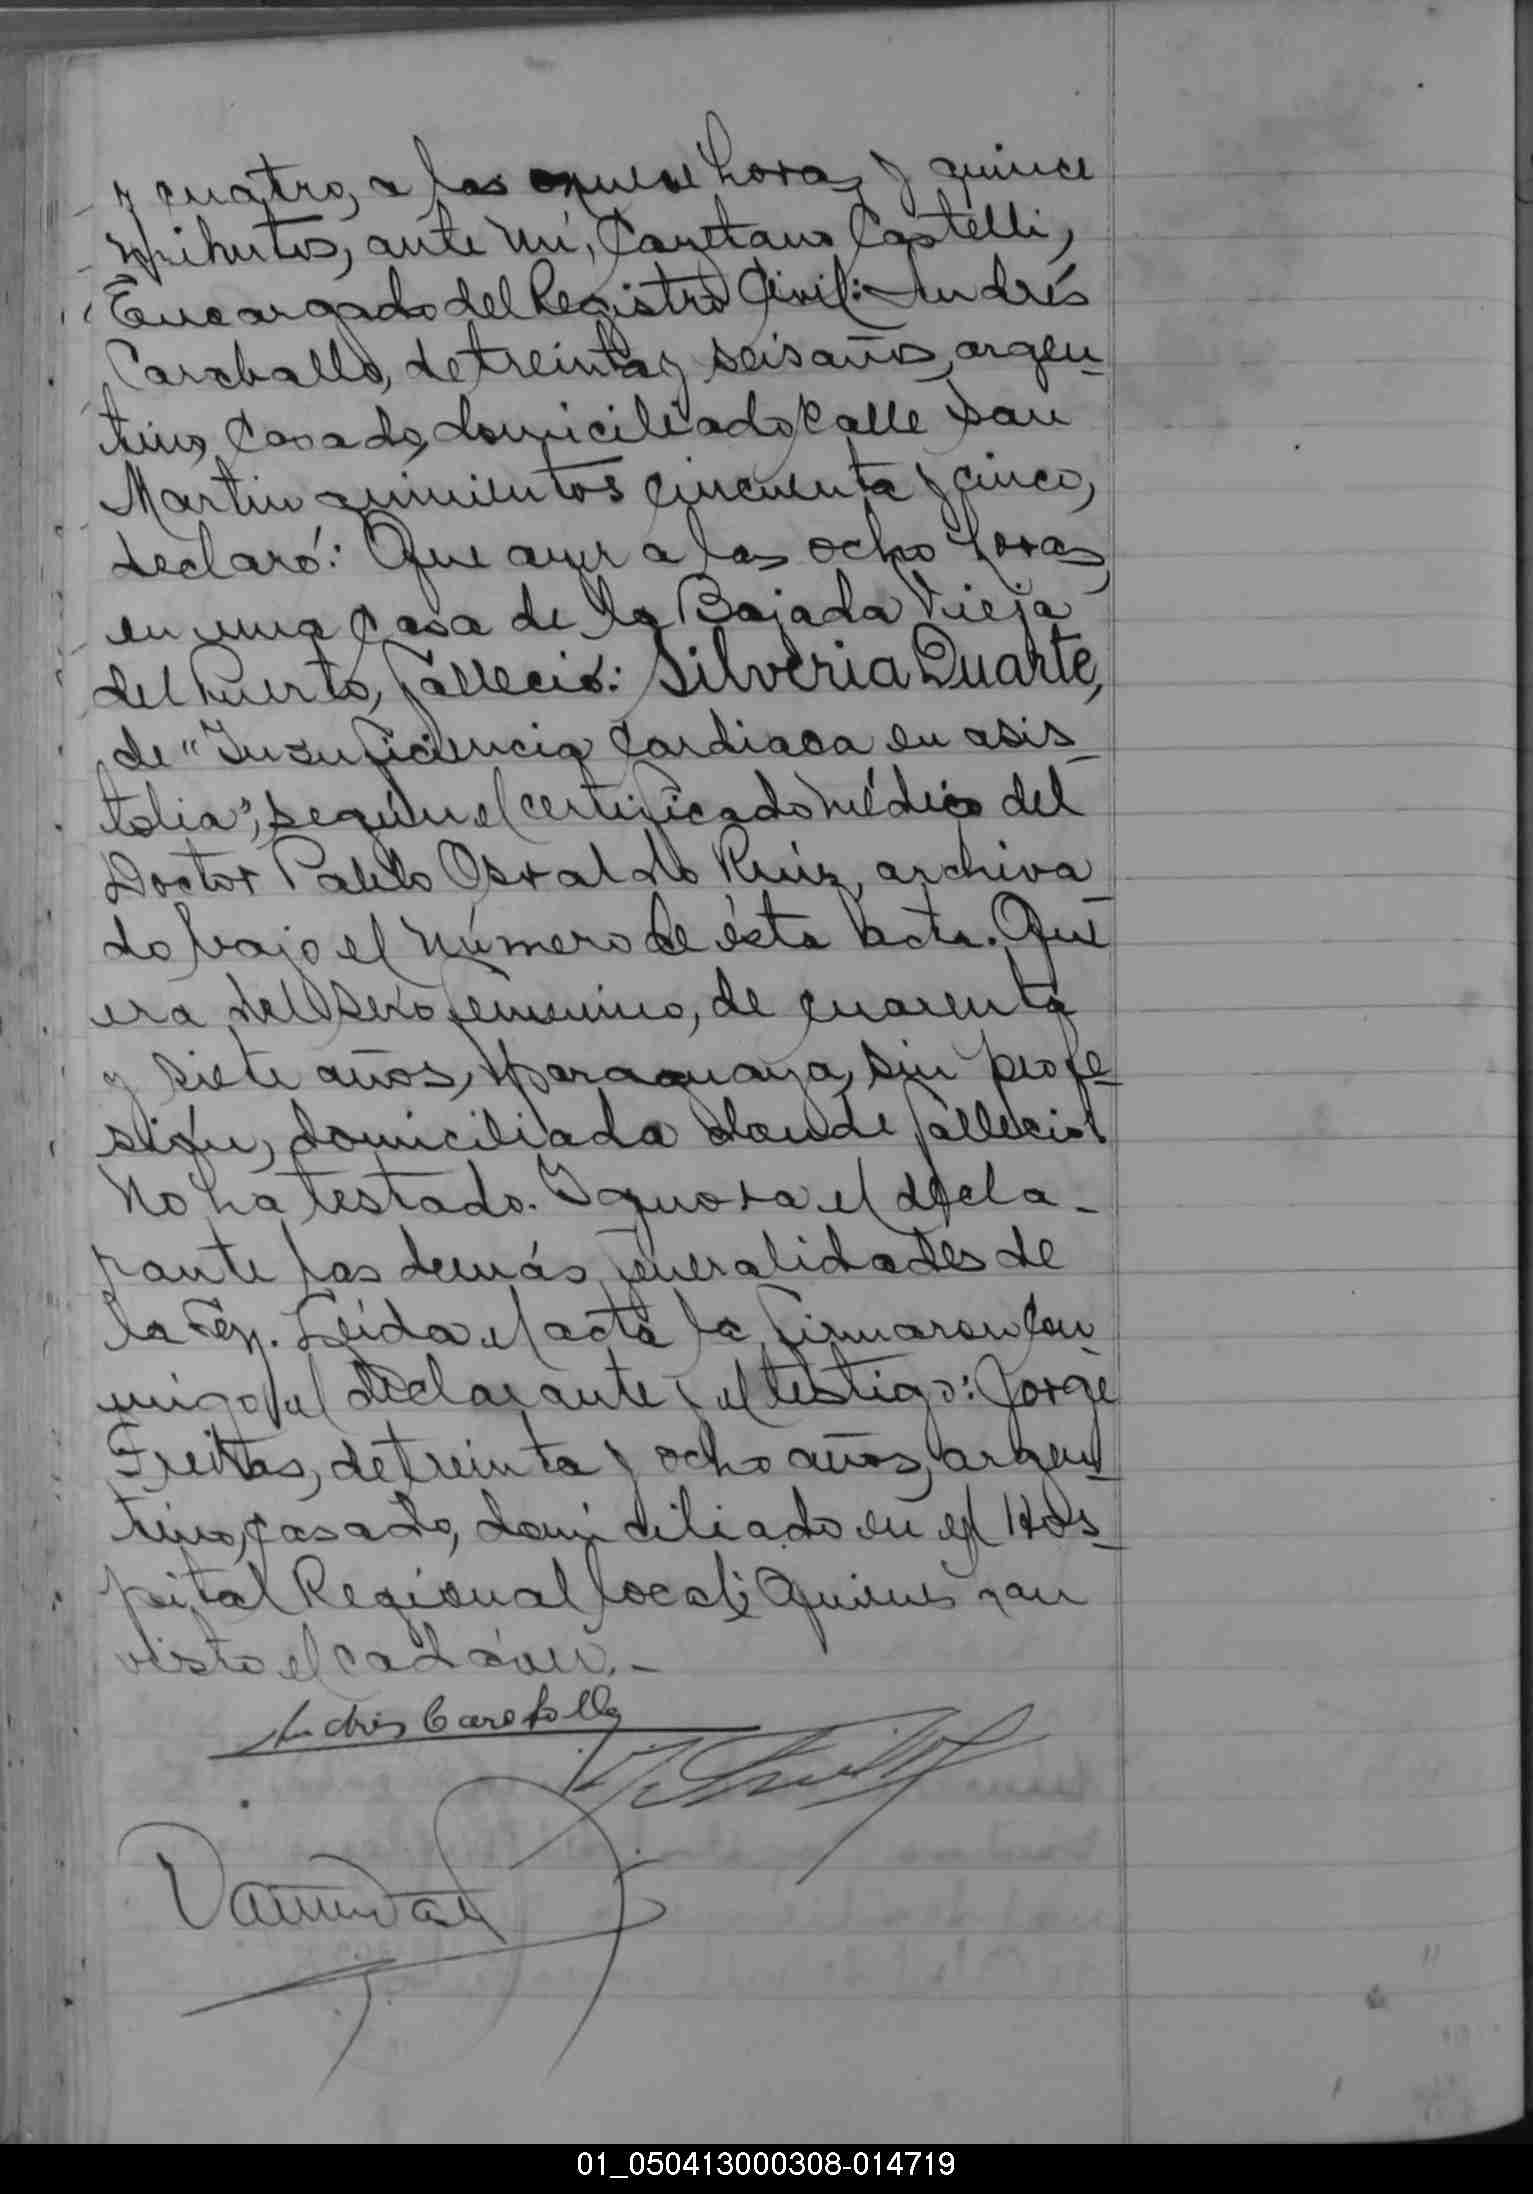 y cuatro, a las nueve horas y quince
minutos, ante mí, Cayetano Castelli,
Encargado del Registro Civil: Andrés
Caraballo, de treinta y seis años, argen-
tino, casado, domiciliado calle San
Martin quinientos cincuenta y cinco,
declaró: Que ayer a las ocho horas,
en una casa de la Bajada Vieja
del Puerto, falleció: Silveria Duarte,
de "Insuficiencia cardiaca en asis-
tolia", según el certificado médico del
Doctor Pablo Osvaldo Ruiz, archiva-
do bajo el número de ésta acta. Que
era del sexo femenino, de cuarenta
y siete años, paraguaya, sin profe-
sión, domiciliada donde falleció.
No ha testado. Ignora el decla-
rante las demás generalidades de
la Ley. Leída el acta la firmaron con-
migo, el declarante y el testigo: Jorge
Freitas, de treinta y ocho años, argen-
tino, casado, domiciliado en el Hos-
pital Regional local; Quienes han
visto el cadáver.-
Andrés Caraballo
01_050413000308-014719